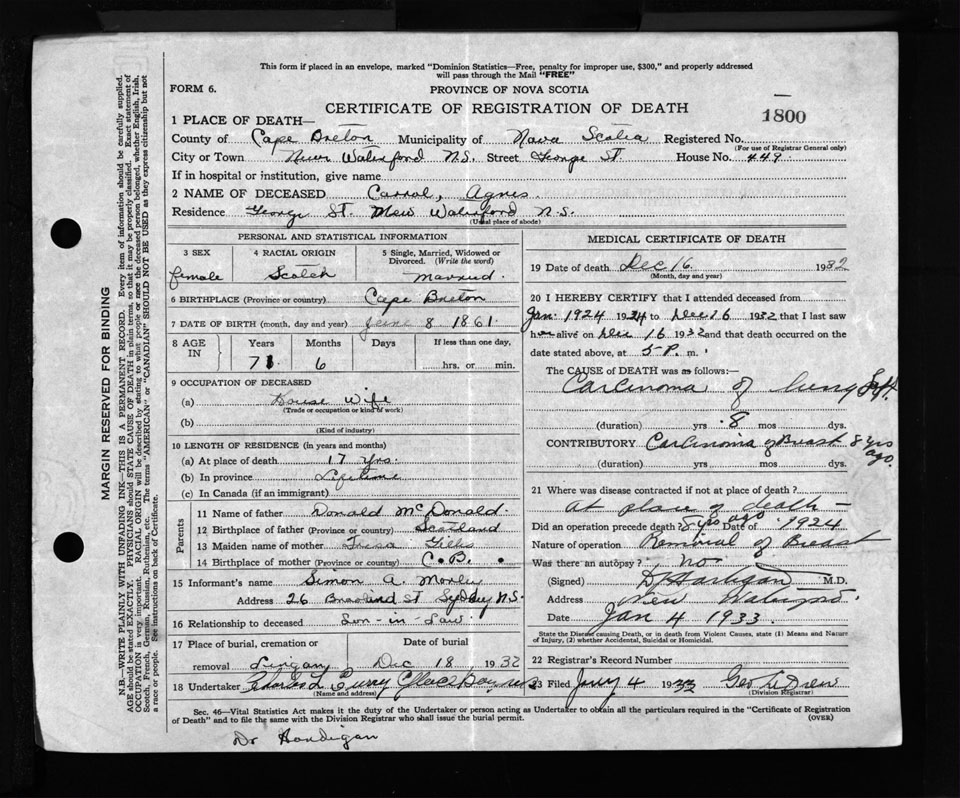 This form if placed in an envelope, marked "Dominion Statistics—Free, penalty for improper use, $300," and properly addressed
will pass through the Mail "FREE"
FORM 6.
PROVINCE OF NOVA SCOTIA
CERTIFICATE OF REGISTRATION OF DEATH
1800
1 PLACE OF DEATH—
County of Cape Breton Municipality of Nova Scotia Registered No.
(For use of Registrar General only)
City or Town New Waterford N.S. Street George St. House No. 449.
If in hospital or institution, give name
2 NAME OF DECEASED Carral, Agnes.
Residence George St. New Waterford N.S.
(Usual place of abode)
PERSONAL AND STATISTICAL INFORMATION
3 SEX
4 RACIAL ORIGIN
5 Single, Married, Widowed or Divorced. (Write the word)
female Scotch Married.
6 BIRTHPLACE (Province or country) Cape Breton
7 DATE OF BIRTH (month, day and year) June 8 1861
8 AGE IN
Years Months Days If less than one day,
71 6 hrs. or min.
9 OCCUPATION OF DECEASED
(a) House Wife
(Trade or occupation or kind of work)
(b)
(Kind of industry)
10 LENGTH OF RESIDENCE (in years and months)
(a) At place of death 17 yrs.
(b) In province Lifetime
(c) In Canada (if an immigrant)
Parents
11 Name of father Donald McDonald.
12 Birthplace of father (Province or country) Scotland
13 Maiden name of mother Gillis
14 Birthplace of mother (Province or country) C.B.
15 Informant's name Simon A. Morley
Address 26 St Sydney N.S.
16 Relationship to deceased Son-in-Law.
17 Place of burial, cremation or removal Date of burial
Lingan Dec 18, 1932
18 Undertaker Charles L Curry Glace Bay N.S.
(Name and address)
MEDICAL CERTIFICATE OF DEATH
19 Date of death Dec 16 1932
(Month, day and year)
20 I HEREBY CERTIFY that I attended deceased from
Jan. 1924 to Dec 16 1932 that I last saw
her alive on Dec 16 1932 and that death occurred on
date stated above, at 5 P. m.
The CAUSE of DEATH was as follows:—
Carcinoma of lung
(duration) yrs 8 mos dys.
CONTRIBUTORY Carcinoma of Breast 8 yrs ago.
(duration) yrs mos dys.
21 Where was disease contracted if not at place of death?
At place of death —
Did an operation precede death? 8 yrs ago Date of 1924
Nature of operation Removal of Breast
Was there an autopsy? no.
(Signed) D Hartigan M.D.
Address New Waterford.
Date Jan 4 1933.
State the Disease causing Death, or in death from Violent Causes, state (1) Means and Nature
of Injury, (2) whether Accidental, Suicidal or Homicidal.
22 Registrar's Record Number
23 Filed Jany 4 1933 Geo L. Drew
(Division Registrar)
Sec. 46—Vital Statistics Act makes it duty of the Undertaker or person acting as Undertaker to obtain all the particulars required in the "Certificate of Registration
of Death" and to file the same with the Division Registrar who shall issue the burial permit.
(OVER)
MARGIN RESERVED FOR BINDING
N.B.—WRITE PLAINLY WITH UNFADING INK—THIS IS A PERMANENT RECORD. Every item of information should be carefully supplied.
AGE should be stated EXACTLY. PHYSICIANS should STATE CAUSE OF DEATH in plain terms, so that it may be properly classified. Exact statement of
OCCUPATION is very important. RACIAL ORIGIN will be described by stating to what people or race the deceased person belonged, whether English, Irish,
Scotch, French, German, Russian, Ruthenian, etc. The terms "AMERICAN" or "CANADIAN" SHOULD NOT BE USED as they express citizenship but not
a race or people. See instructions on back of Certificate.